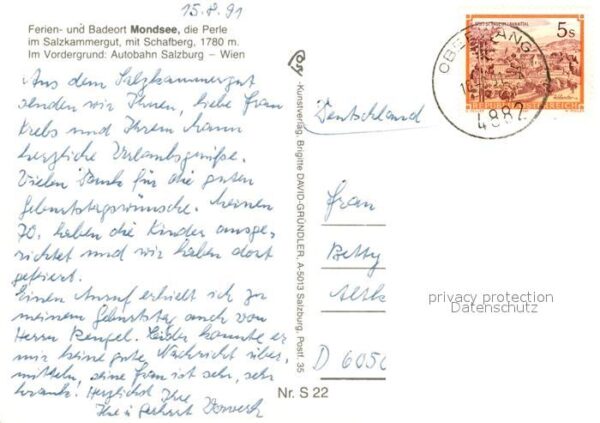 15.8.91
Ferien- und Badeort Mondsee, die Perle
im Salzkammergut, mit Schafberg, 1780 m.
Im Vordergrund: Autobahn Salzburg – Wien
Aus dem Salzkammergut
senden wir Ihnen, liebe Frau
Krebs und Ihrem Mann
herzliche Urlaubsgrüße.
Vielen Dank für die guten
Geburtstagswünsche. Meinen
70. haben die Kinder ausge-
richtet und wir haben dort
gefeiert.
Einen Anruf erhielt ich zu
meinem Geburtstag auch von
Herrn Leider konnte er
mir keine gute Nachricht über-
mitteln, seine Frau ist sehr, sehr
krank. Herzlichst Ihre
Ihre u. Gerhart
Kunstverlag, Brigitte DAVID-GRÜNDLER, A-5013 Salzburg, Postf. 35
5 S
REPUBLIK ÖSTERREICH
4882
Deutschland
Frau
Betty
D 6050
privacy protection
Datenschutz
Nr. S 22